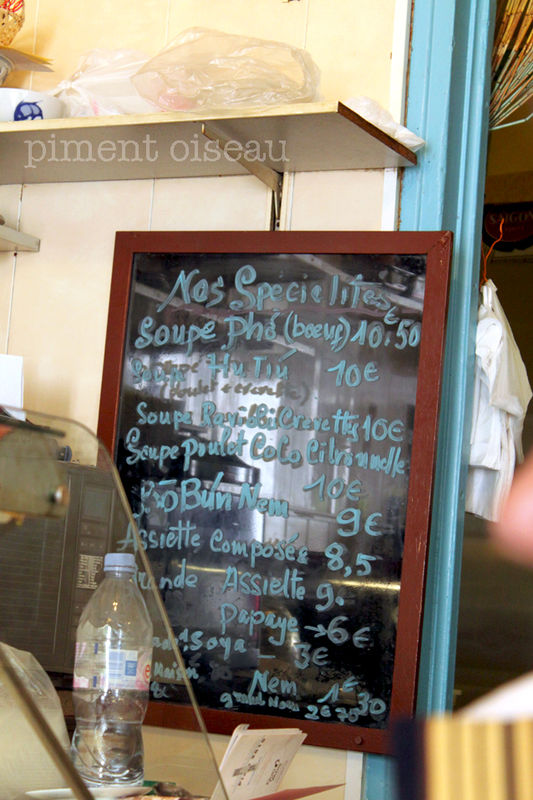 piment oiseau
SAIGON
Nos Spécialités
Soupe Phở (bœuf) 10.50 €
Soupe Hu Tiú 10€
(Poulet + crevette)
Soupe Ravioli Crevettes 10€
Soupe Poulet CoCo Citronnelle
10€
Bò Bún Nem 9€
Assiette Composée 8,5
Grande Assiette 9.
Papaye → 6€
Soya — 3€
Maison
Nem 1€30
grand Nem 2€70